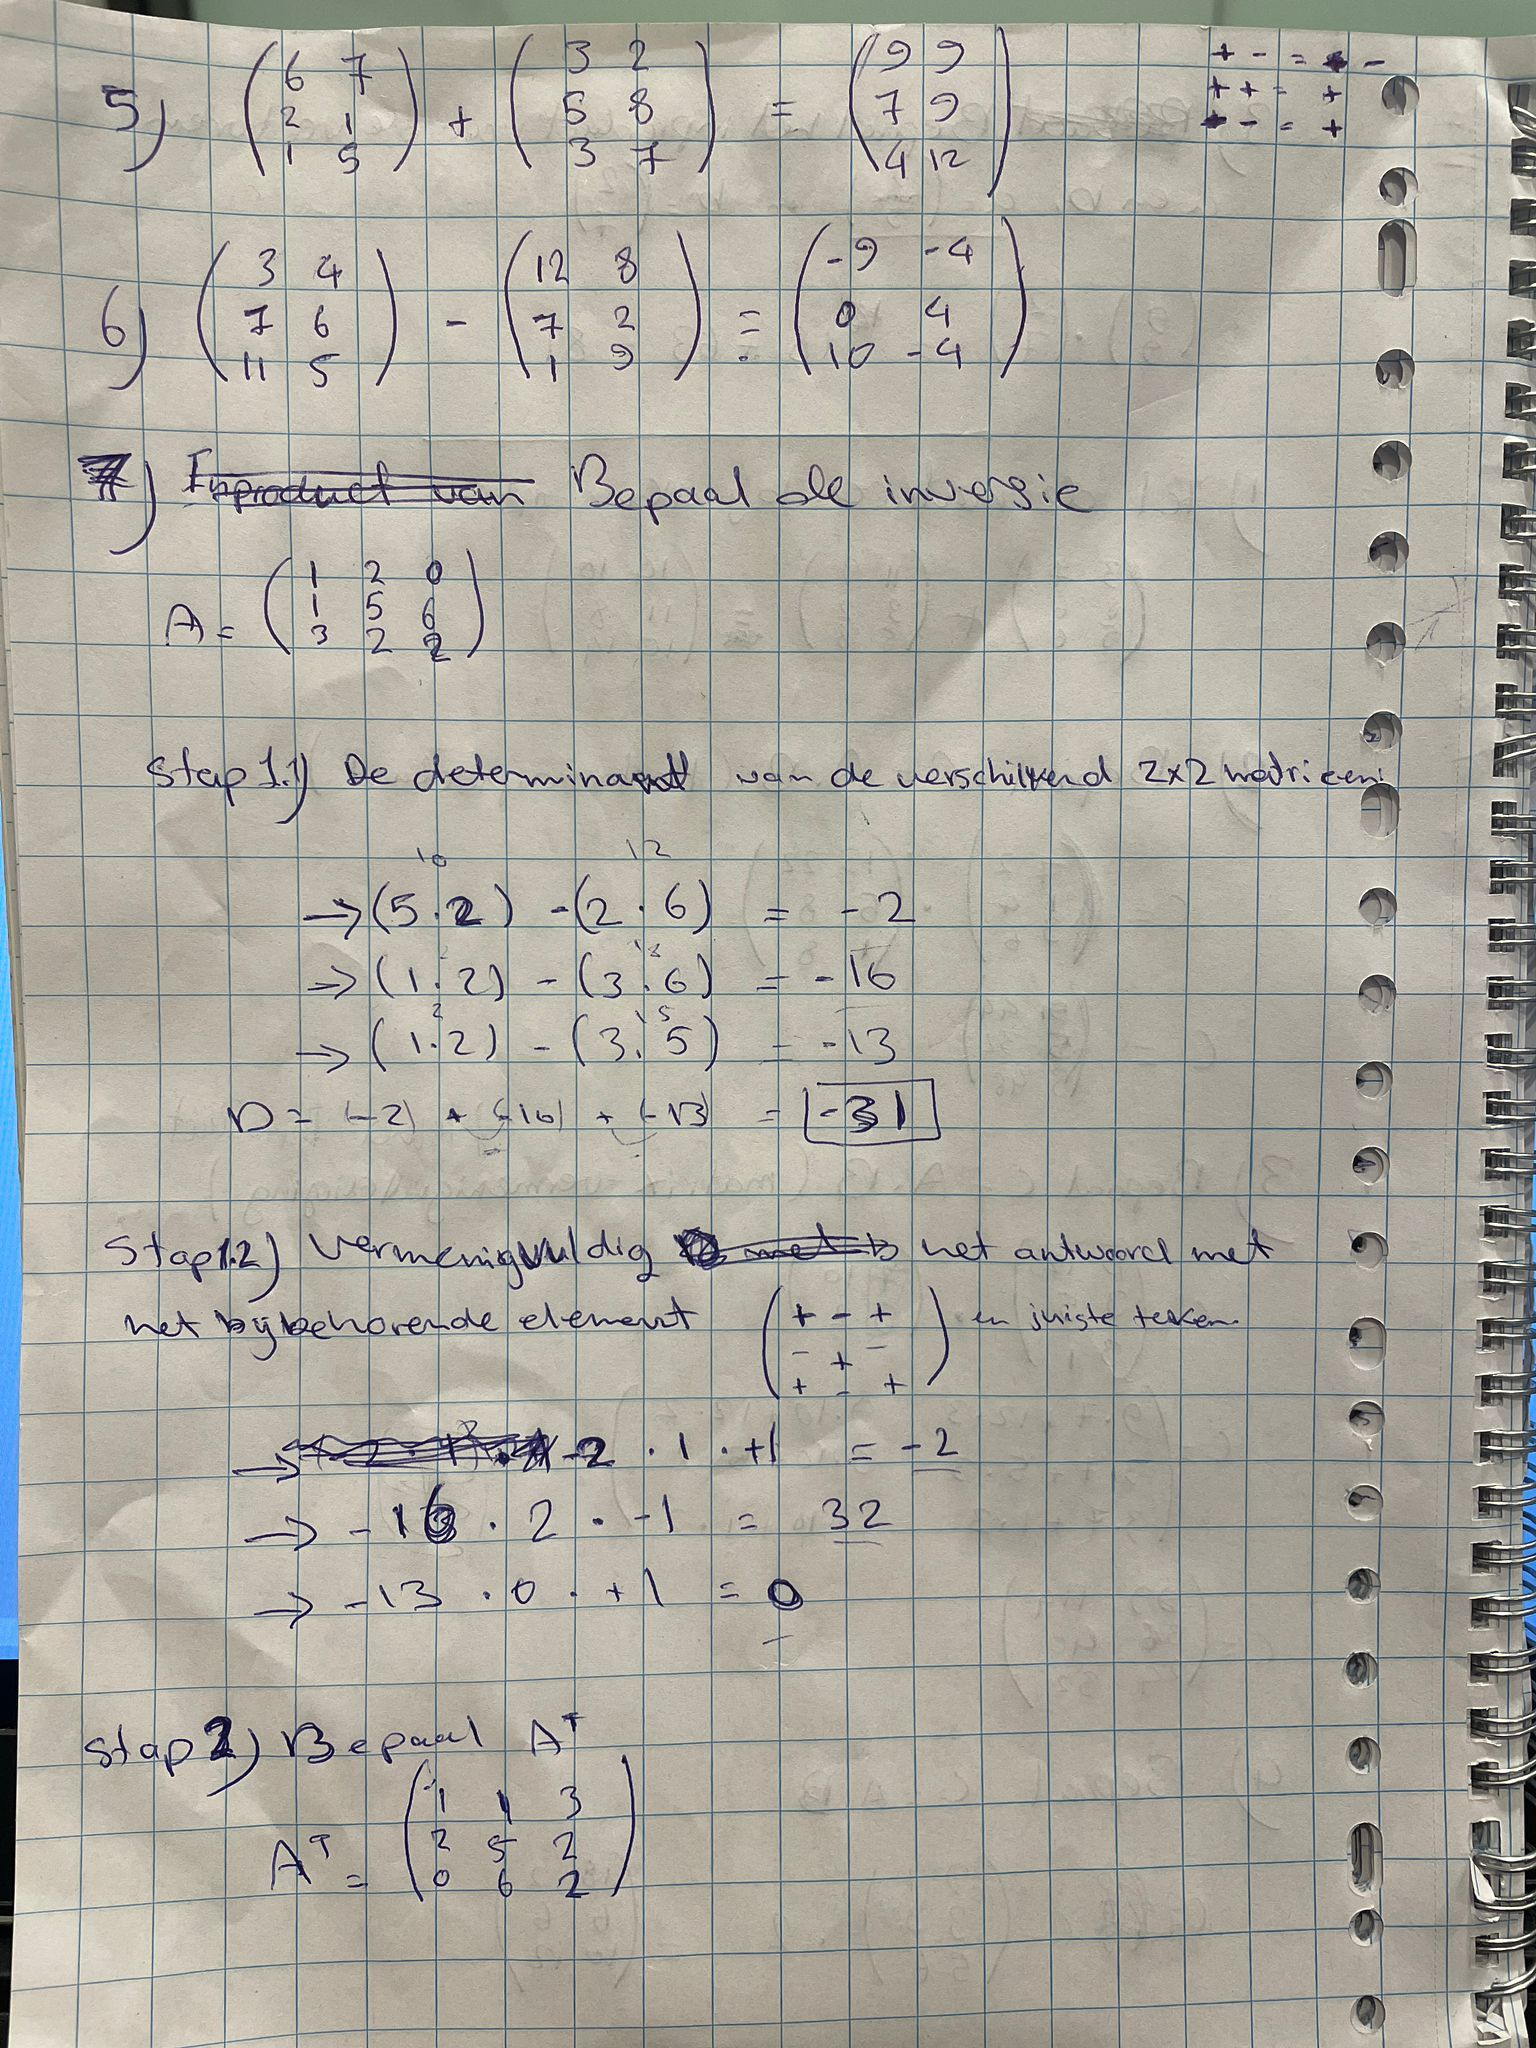 5) (6 7 2 1 1 5) + (3 2 5 8 3 7) = (9 9 7 9 4 12)
+ - = -
+ + = +
- - = +
6) (3 4 7 6 11 5) - (12 8 7 2 1 9) = (-9 -4 0 4 10 -4)
7) Inproduct van Bepaal de inversie
A = (1 2 0 1 5 6 3 2 2)
Stap 1.1) De determinant van de verschillend 2x2 matricen:
10 12
→ (5 . 2) - (2 . 6) = -2
18
→ (1 . 2) - (3 . 6) = -16
2 15
→ (1 . 2) - (3 . 5) = -13
D = (-2) + (-16) + (-13) = -31
Stap 1.2) Vermenigvuldig met het antwoord met
het bijbehorende element (+ - + - + - + - +) en juiste teken.
→ -2 . 1 . +1 = -2
→ -16 . 2 . -1 = 32
→ -13 . 0 . +1 = 0
Stap 2) Bepaal Aᵀ
Aᵀ = (1 1 3 2 5 2 0 6 2)